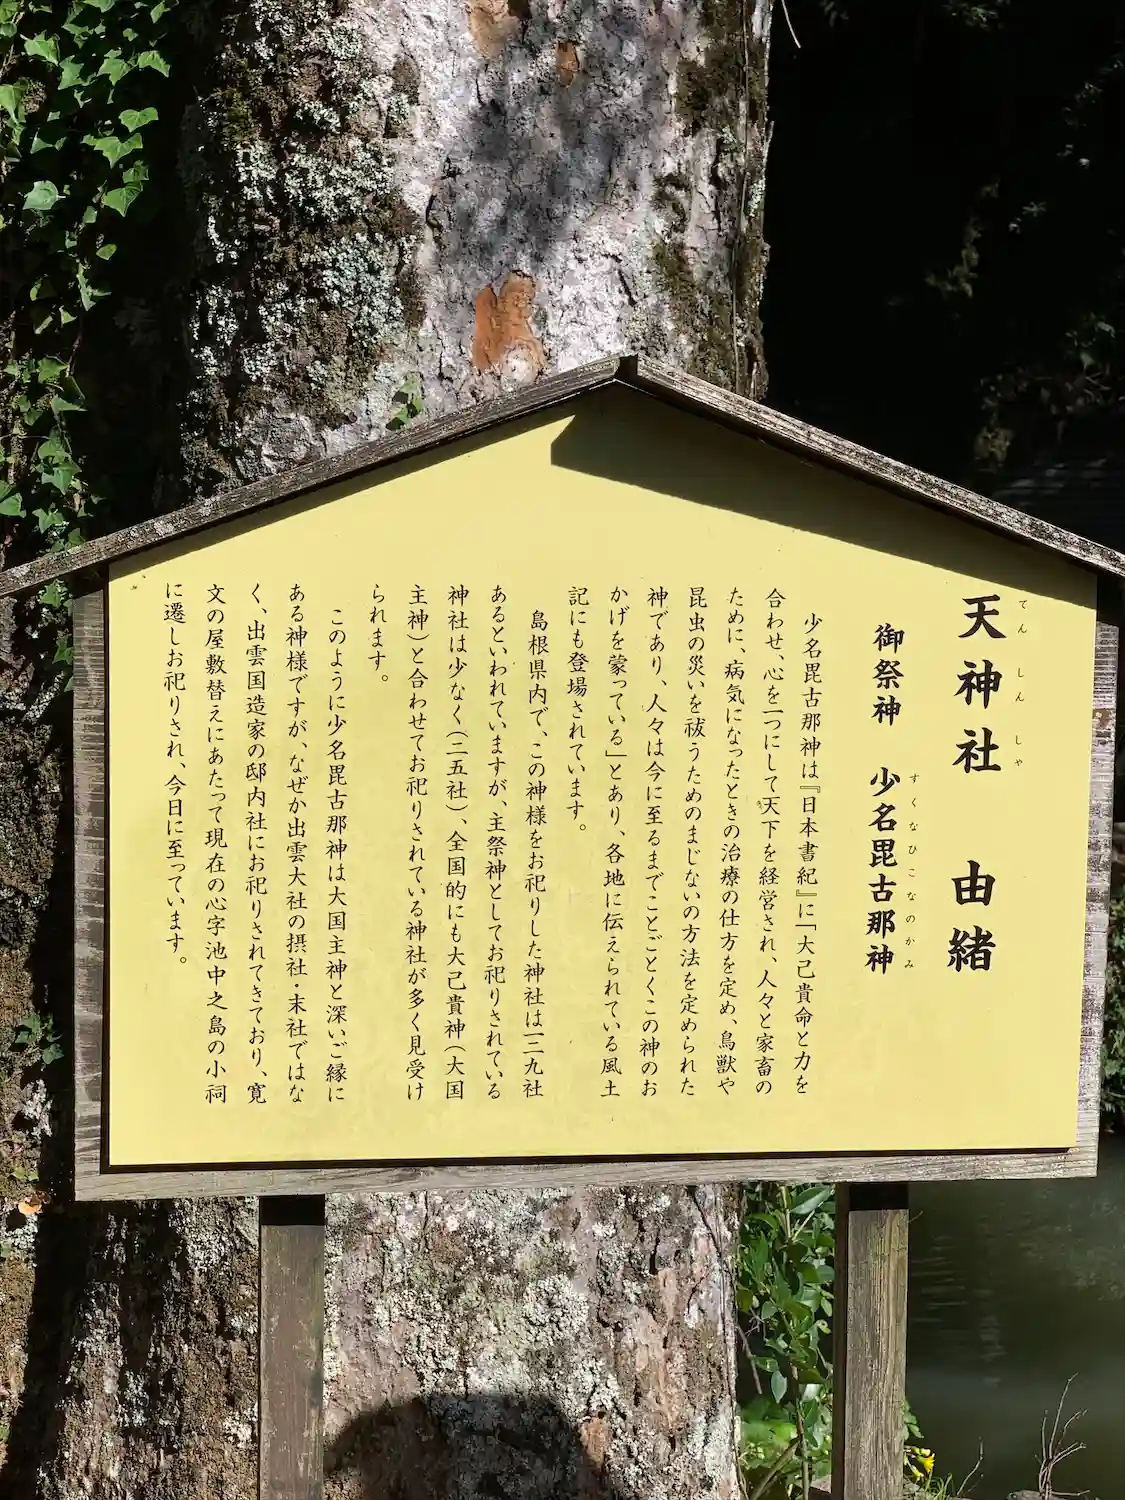 天神社 由緒
てん しん しや
御祭神 少名毘古那神
すくなひこなのかみ
少名毘古那神は『日本書紀』に「大己貴命と力を
合わせ、心を一つにして天下を経営され、人々と家畜の
ために、病気になったときの治療の仕方を定め、鳥獣や
昆虫の災いを祓うためのまじないの方法を定められた
神であり、人々は今に至るまでことごとくこの神のお
かげを蒙っている」とあり、各地に伝えられている風土
記にも登場されています。
島根県内で、この神様をお祀りした神社は一三九社
あるといわれていますが、主祭神としてお祀りされている
神社は少なく(二五社)、全国的にも大己貴神(大国
主神)と合わせてお祀りされている神社が多く見受け
られます。
このように少名毘古那神は大国主神と深いご縁に
ある神様ですが、なぜか出雲大社の摂社・末社ではな
く、出雲国造家の邸内社にお祀りされてきており、寛
文の屋敷替えにあたって現在の心字池中之島の小祠
に遷しお祀りされ、今日に至っています。